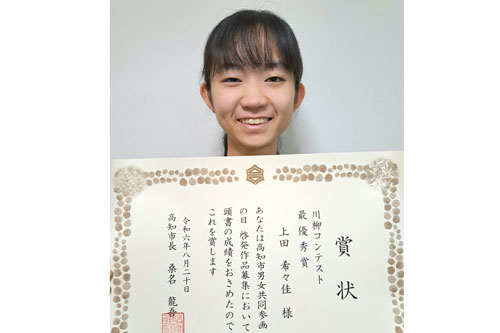 賞状
川柳コンテスト
最優秀賞
上田 希々佳 様
あなたは高知市男女共同参画
の日 啓発作品募集において
頭書の成績をおさめたので
これを賞します
令和六年八月二十日
高知市長 桑名 龍吾